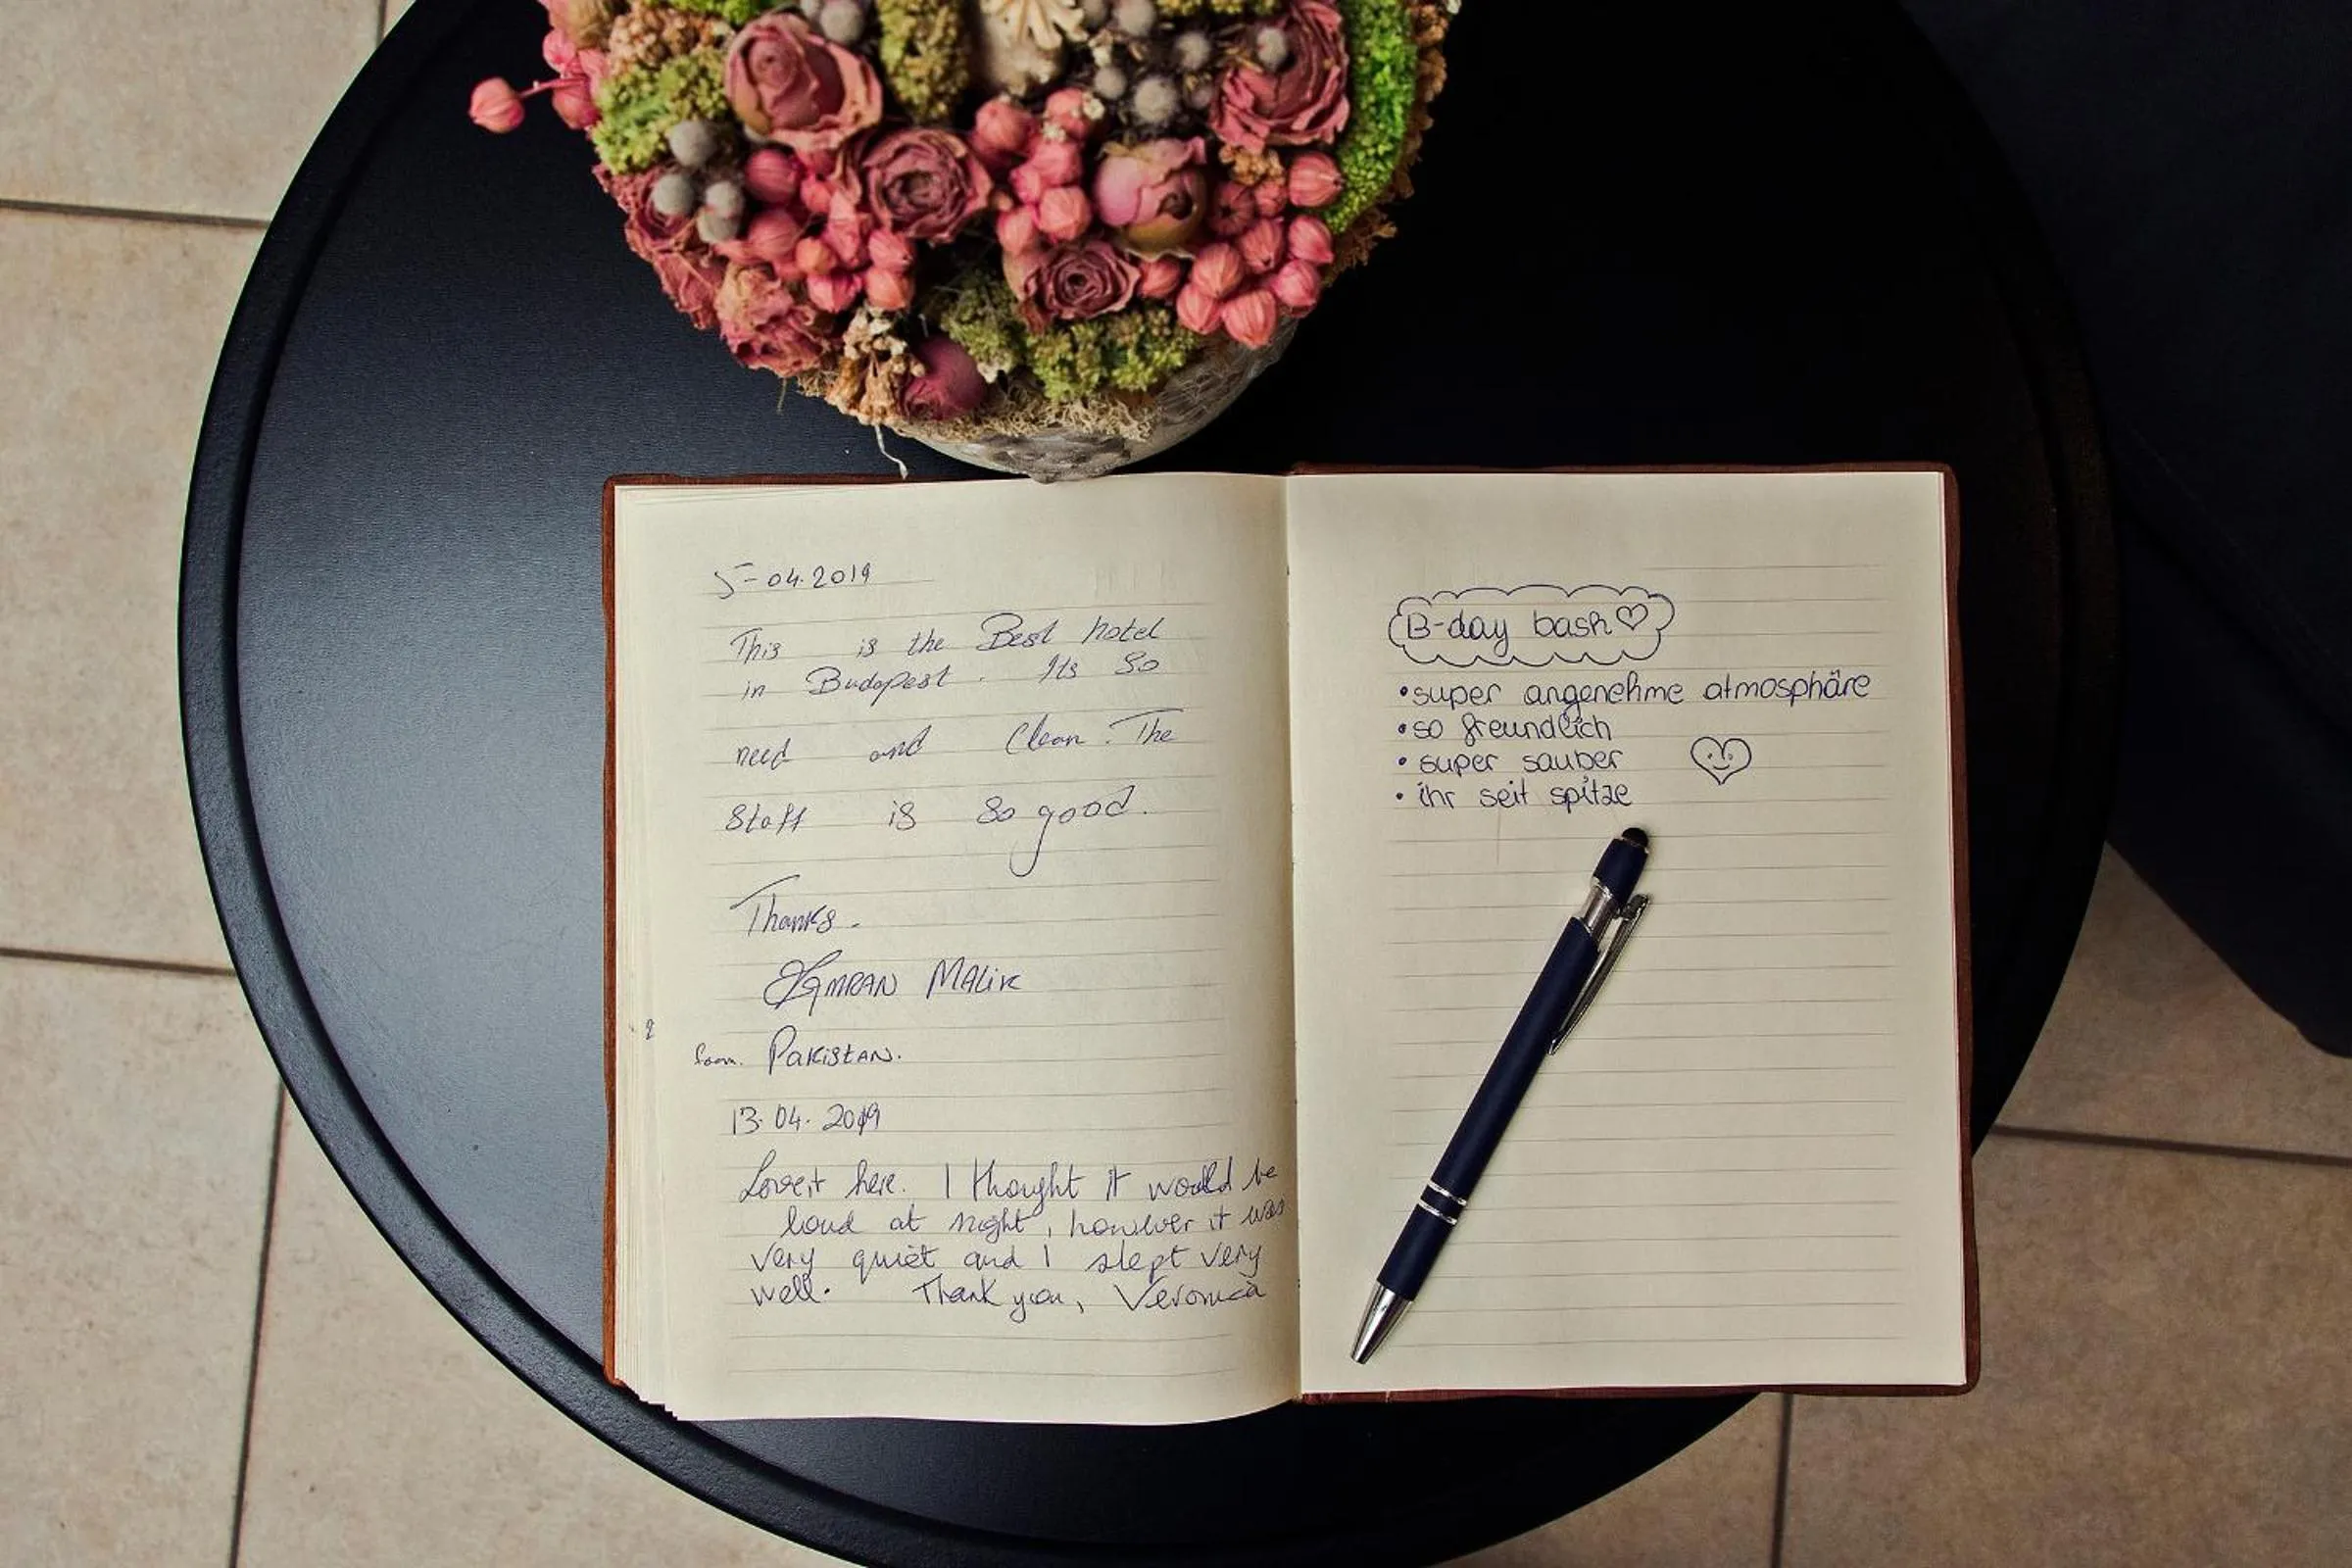 5-04.2019
This is the Best hotel
in Budapest. Its So
need and Clean. The
Staff is so good.
Thanks.
KAMRAN MALIK
from. PAKISTAN.
13.04.2019
Love it here. I thought it would be
loud at night, however it was
very quiet and I slept very
well. Thank you, Veronica
B-day bash♡
•super angenehme atmosphäre
•so freundlich
•super sauber
•ihr seit spitze